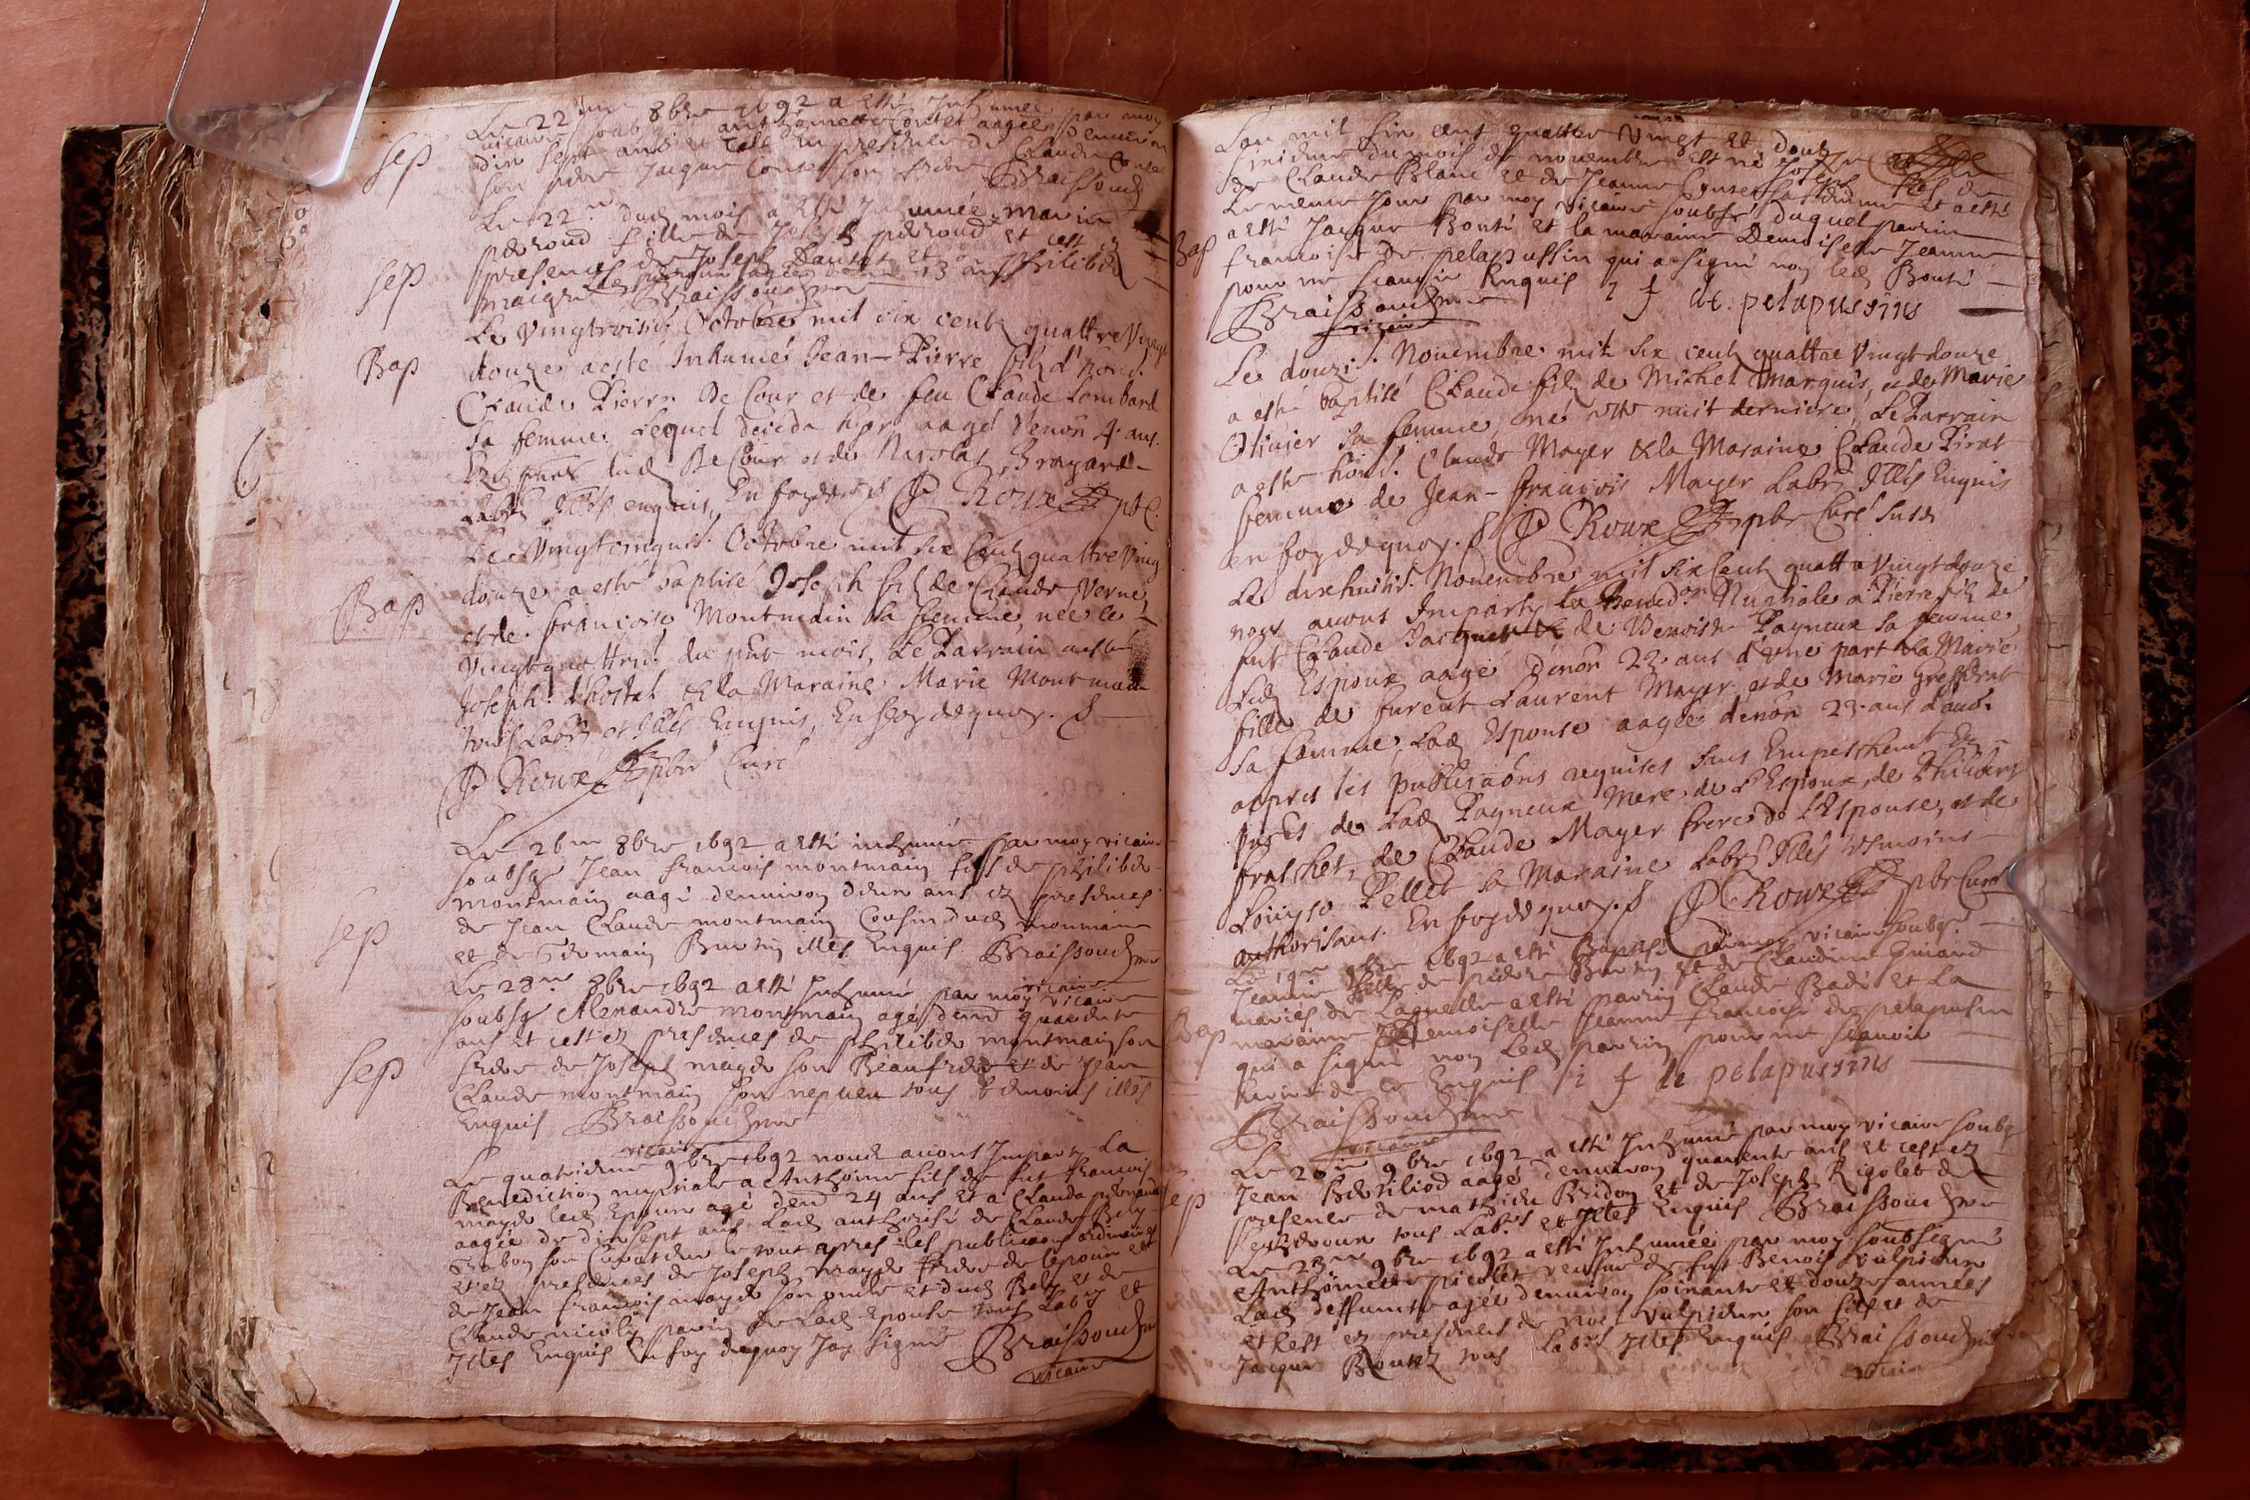 Le 22me 8bre 1692 a esté Inhumée par moy
vicaire soub anthoinette Contet aagée denviron
dix sept ans et cest en presence de Claude Contet
son pere Jacque Contet son frere Braissoud
sep
Le 22e dud mois a esté Inhumée marie
peroud fille de Joseph peroud et cest ez
presences de Joseph Dautet et philibe
sep
maigre
Braissoud
Le Vingtroisie Octobre mil six cents quattre Vingt
Bap
douze a esté Inhumé Jean-Pierre filz d'hon.
Claude Pierre De Cour et de feu Claude Lombard
sa femme. Lequel deceda hyer aagé d'enon 4 ans.
Presents lud De Cour et de Nicolas Brayard
Labrs Illés enquis, En foy de P Roux pbr C.
Le Vingtcinquie Octobre mil six Cents quattre Ving
Bap
douze a esté baptisé Joseph filz de Claude Verne,
et de françoise Montmain sa femme, née le
Vingtquattrie du pnt mois, Le Parrain a esté
Joseph Lhostal & la Maraine Marie Montmain
tous Labrs et Illés Enquis, En foy dequoy.
P Roux pbr Curé
Le 26me 8bre 1692 a esté inhumé par moy vicaire
soubsg Jean francois montmain fils de philibe
montmain aagé denviron deux ans ez presences
sep
de Jean Claude montmain Cousin dud montmain
et de Romain Burtin illés Enquis Braissoud
Le 28me 8bre 1692 a esté Inhumé par moy vicaire
soubsg Alexandre montmain agé denv quarante
ans et cest ez presences de philibe montmain son
sep
frere de Joseph mayde son Beaufrere et de Jean
Claude montmain son nepueu tous temoins illés
Enquis Braissoud
vicaire
Le quatrieme 9bre 1692 nous avons Imparty La
Benediction nuptiale a Anthoine fils de fut francois
mayde led Epoux agé denv 24 ans et a Clauda
aagée de dix sept ans Lad authorisé de Claude Bely
son Curateur le tout apres les publicaons ordinaires
et ez presences de Joseph mayde frere de lepoux et
de Jean francois mayde son oncle et dud Bely et de
Claude nicoly parin de Lad Epouse tous Labrs et
Illés Enquis En foy dequoy Jay Signé Braissoud
vicaire
Lan mil six cens quatter vingt et douze
du mois de novembre est né Joseph fils de
Claude Blanc et de Jeanne Contet sa femme et a esté
Le mesme Jour par moy vicaire soubsg duquel parrin
Bap
a esté Jacque Bonté et la maraine Demoiselle Jeanne
francoise De pelapussin qui a signé non led Bonté
pour ne scavoir Enquis i f de pelapussins
Braissoud
vicaire
Le douzie Novembre mil six cents quattre Vingtdouze
a esté baptisé Claude filz de Michel Marquis, et de Marie
Olivier sa femme, né cette nuit derniere, Le Parrain
a esté hon. Claude Mayer & la Maraine Claude Pirat
femme de Jean-françois Mayer Labrs Illés Enquis
en foy de quoy. P Roux pbr Curé susd
Le dixhuitie Novembre mil six Cents quattre Vingtdouze
nous avons Imparty la bened.on Nuptiale a Pierre filz de
fut Claude Jacquet & de Benoiste Payneux sa femme,
Led Espoux aagé d'enon 23 ans d'une part & a Marie
fille de furent Laurent Mayer et de Marie Greffirat
sa femme, Lad Espouse aagée denon 23 ans d'aud.
appres les publicaons requises sans Empeschemt Ez
Pnces de Lad Payneux Mere de l'Espoux, de Philibert
fraschet, de Claude Mayer frere de l'Espouse, et de
Louyse Pellet sa Maraine Labrs Illés temoins
authorisans. En foy de quoy. P Roux pbr Curé
Le 19me 9bre 1692 a esté Baptisé par moy vicaire soubsg.
Jeanne fille de pierre Burtin et de Claudine Guiard
mariés de Laquelle a esté parrin Claude Badé et La
Bap
maraine Demoiselle Jeanne francoise de pelapussin
qui a signé non Led parrin pour ne scavoir
Enquis i f de pelapussins
Braissoud
vicaire
Le 20me 9bre 1692 a esté Inhumé par moy vicaire soubsg
Jean aagé denviron quarente ans et cest ez
sep
presence de mathieu Bridon et de Joseph Rigolet
tous Labrs et Illés Enquis Braissoud
Le 23me 9bre 1692 a esté Inhumée par moy soubsigné
Anthoinette picolet veufue de fut Benoist vulpieux
Lad deffuncte agée denviron soixante et douze années
et c'est ez presences de noel vulpieux son fils et de
Jacque tous Labrs Illés Enquis Braissoud
vicaire